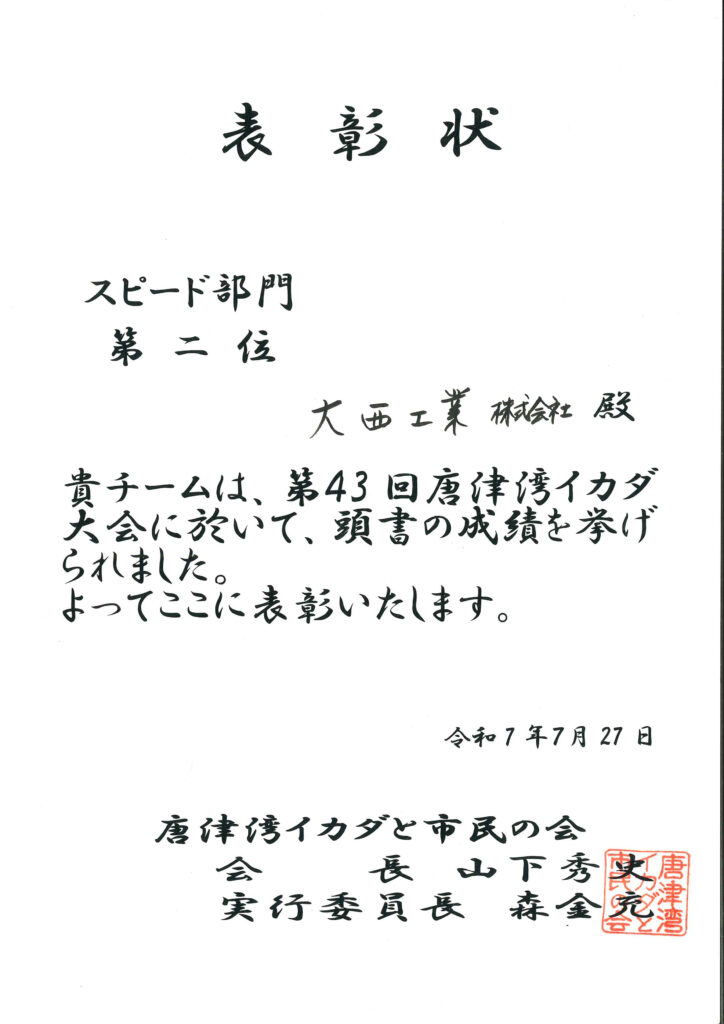 表彰状
スピード部門
第二位
大西工業 株式会社 殿
貴チームは、第43回唐津湾イカダ
大会に於いて、頭書の成績を挙げ
られました。
よってここに表彰いたします。
令和7年7月27日
唐津湾イカダと市民の会
会 長 山下秀史
実行委員長 森金充
唐津湾
イカダと
市民の会